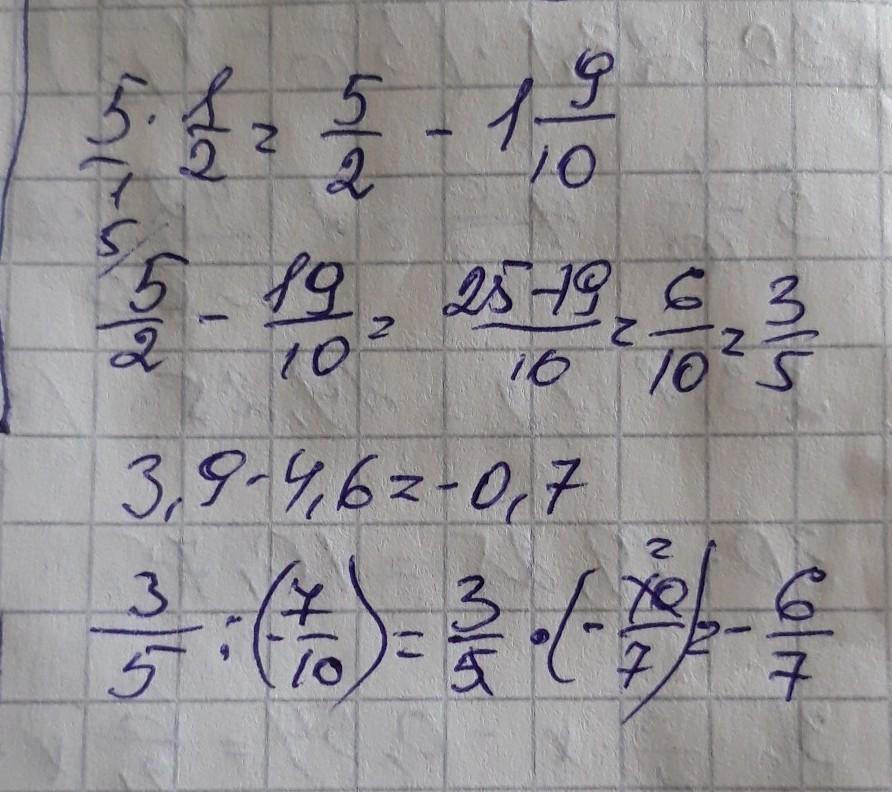 5/1 · 1/2 = 5/2 - 1 9/10
5/2 - 19/10 = 25-19/10 = 6/10 = 3/5
3,9-4,6=-0,7
3/5 : (-7/10) = 3/5 · (-10/7) = -6/7